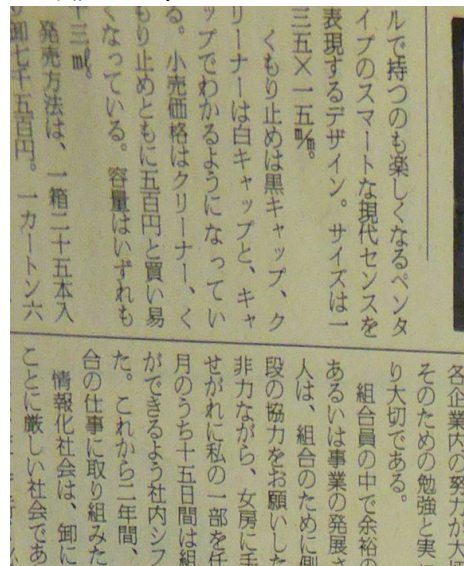 ルで持つのも楽しくなるペンタ
イプのスマートな現代センスを
表現するデザイン。サイズは一
三五×一五㎜。
くもり止めは黒キャップ、ク
リーナーは白キャップと、キャ
ップでわかるようになってい
る。小売価格はクリーナー、く
もり止めともに五百円と買い易
くなっている。容量はいずれも
十三㎖。
発売方法は、一箱二十五本入
り卸七千五百円。一カートン六
各企業内の努力が大切
そのための勉強と実
り大切である。
組合員の中で余裕の
あるいは事業の発展さ
人は、組合のために側
段の協力をお願いした
非力ながら、女房に手
せがれに私の一部を任
月のうち十五日間は組
ができるよう社内シフ
た。これから二年間、
合の仕事に取り組みた
情報化社会は、卸に
ことに厳しい社会であ